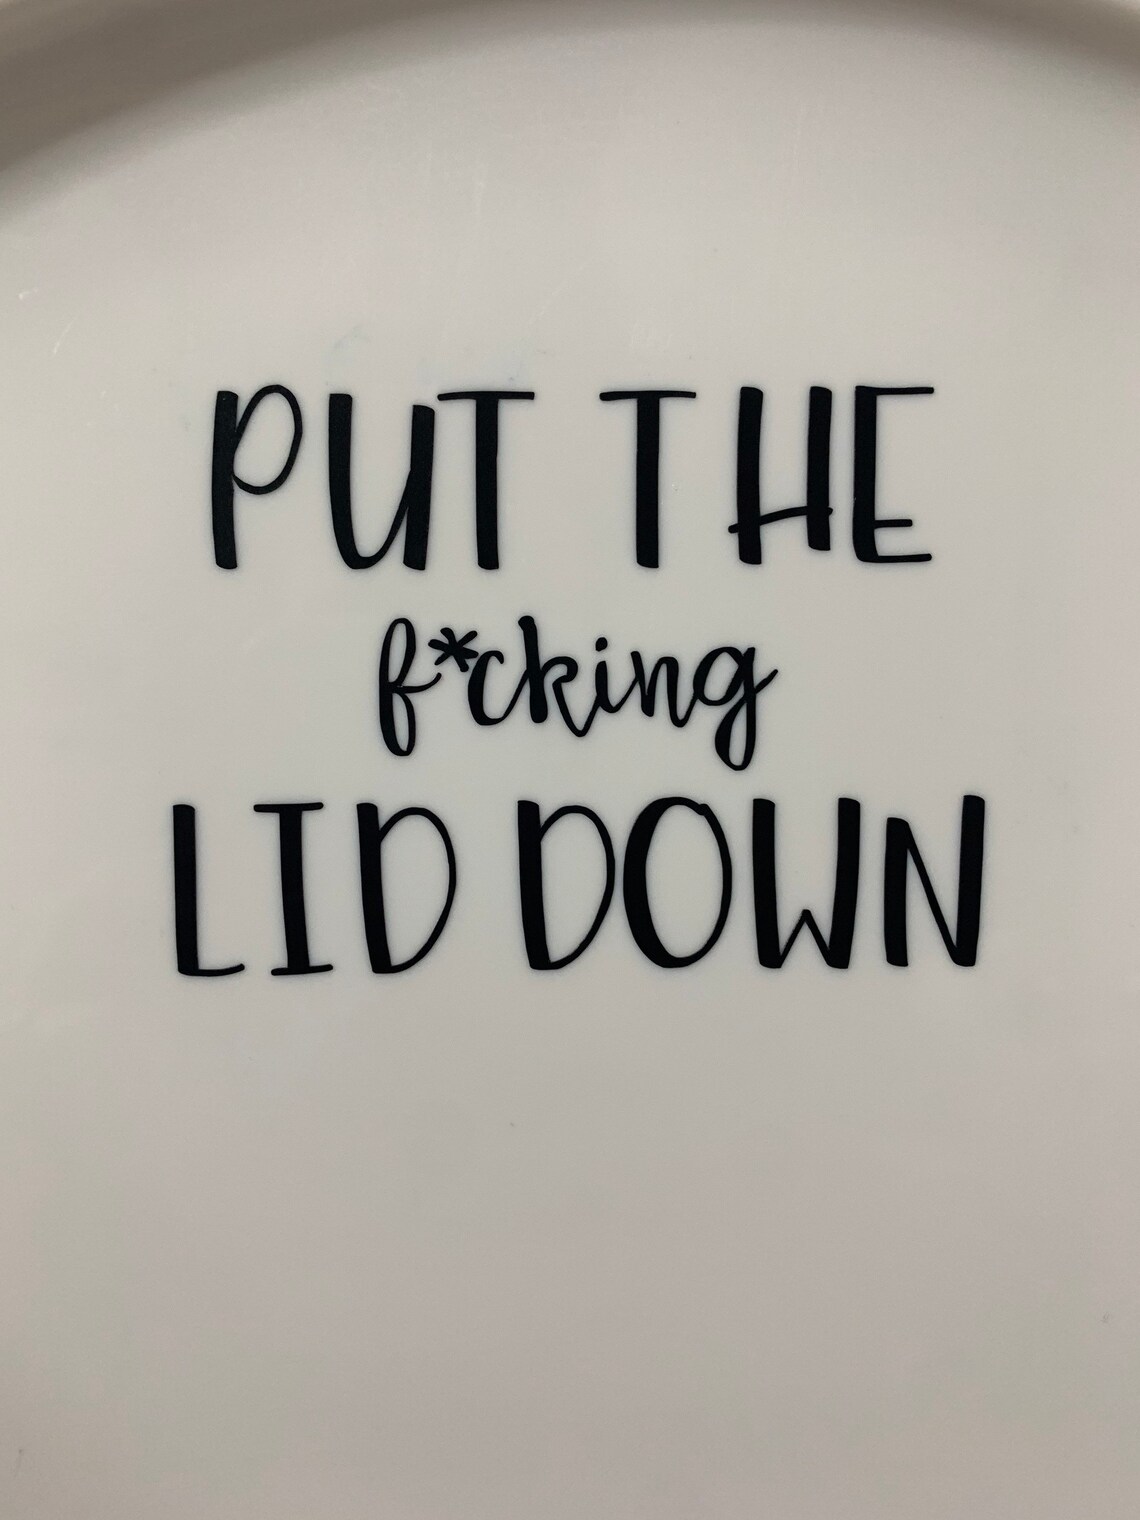 PUT THE
f*cking
LID DOWN